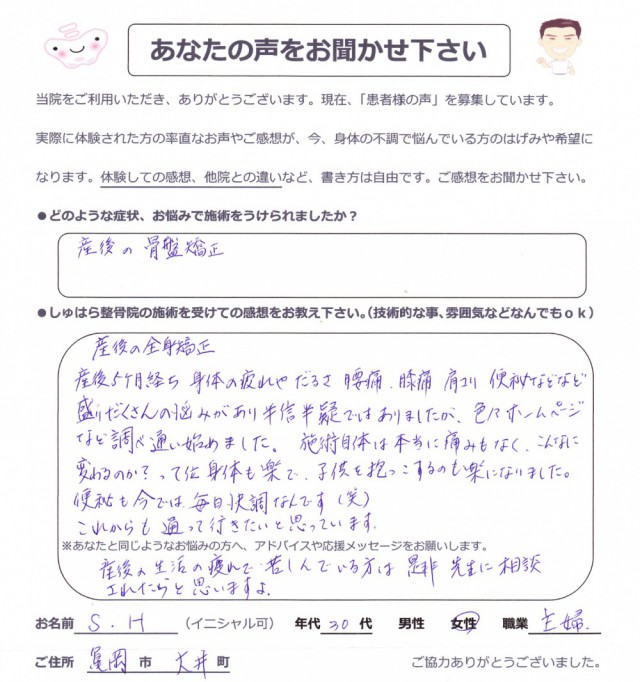 あなたの声をお聞かせ下さい
当院をご利用いただき、ありがとうございます。現在、「患者様の声」を募集しています。
実際に体験された方の率直なお声やご感想が、今、身体の不調で悩んでいる方のはげみや希望に
なります。体験しての感想、他院との違いなど、書き方は自由です。ご感想をお聞かせ下さい。
●どのような症状、お悩みで施術をうけられましたか？
産後の骨盤矯正
●しゅはら整骨院の施術を受けての感想をお教え下さい。（技術的な事、雰囲気などなんでもｏｋ）
産後の全身矯正
産後5ケ月経ち 身体の疲れやだるさ 腰痛、膝痛 肩コリ 便秘などなど
盛りだくさんの悩みがあり半信半疑ではありましたが、色々ホームページ
など調べ通い始めました。 施術自体は本当に痛みもなく、こんなに
変わるのか？って位身体も楽で、子供を抱っこするのも楽になりました。
便秘も今では、毎日快調なんです（笑）
これからも通って行きたいと思っています。
※あなたと同じようなお悩みの方へ、アドバイスや応援メッセージをお願いします。
産後の生活の疲れで苦しんでいる方は是非先生に相談
されたらと思いますよ。
お名前 S．H （イニシャル可） 年代 30 代 男性 女性 職業 主婦．
ご住所 亀岡 市 大井 町 ご協力ありがとうございました。